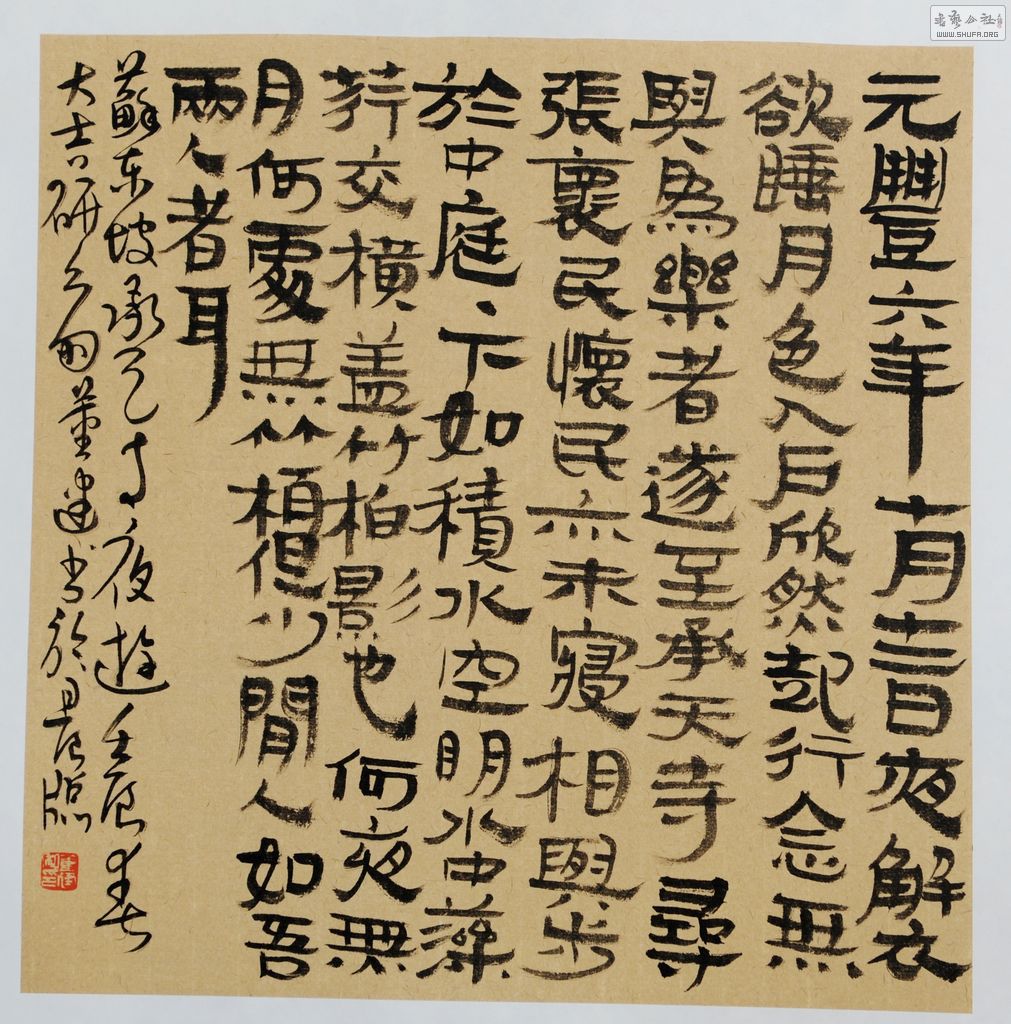 元豐六年十月十二日夜解衣
欲睡月色入户欣然起行念無
與為樂者遂至承天寺尋
張褱民懷民亦未寢相與步
於中庭、下如積水空明水中藻
荇交橫盖竹柏影也何夜無
月何處無竹柏但少閒人如吾
兩人者耳
蘇東坡承天寺夜遊壬辰春
大吉研董建書於
書藝公社
WWW.SHUFA.ORG